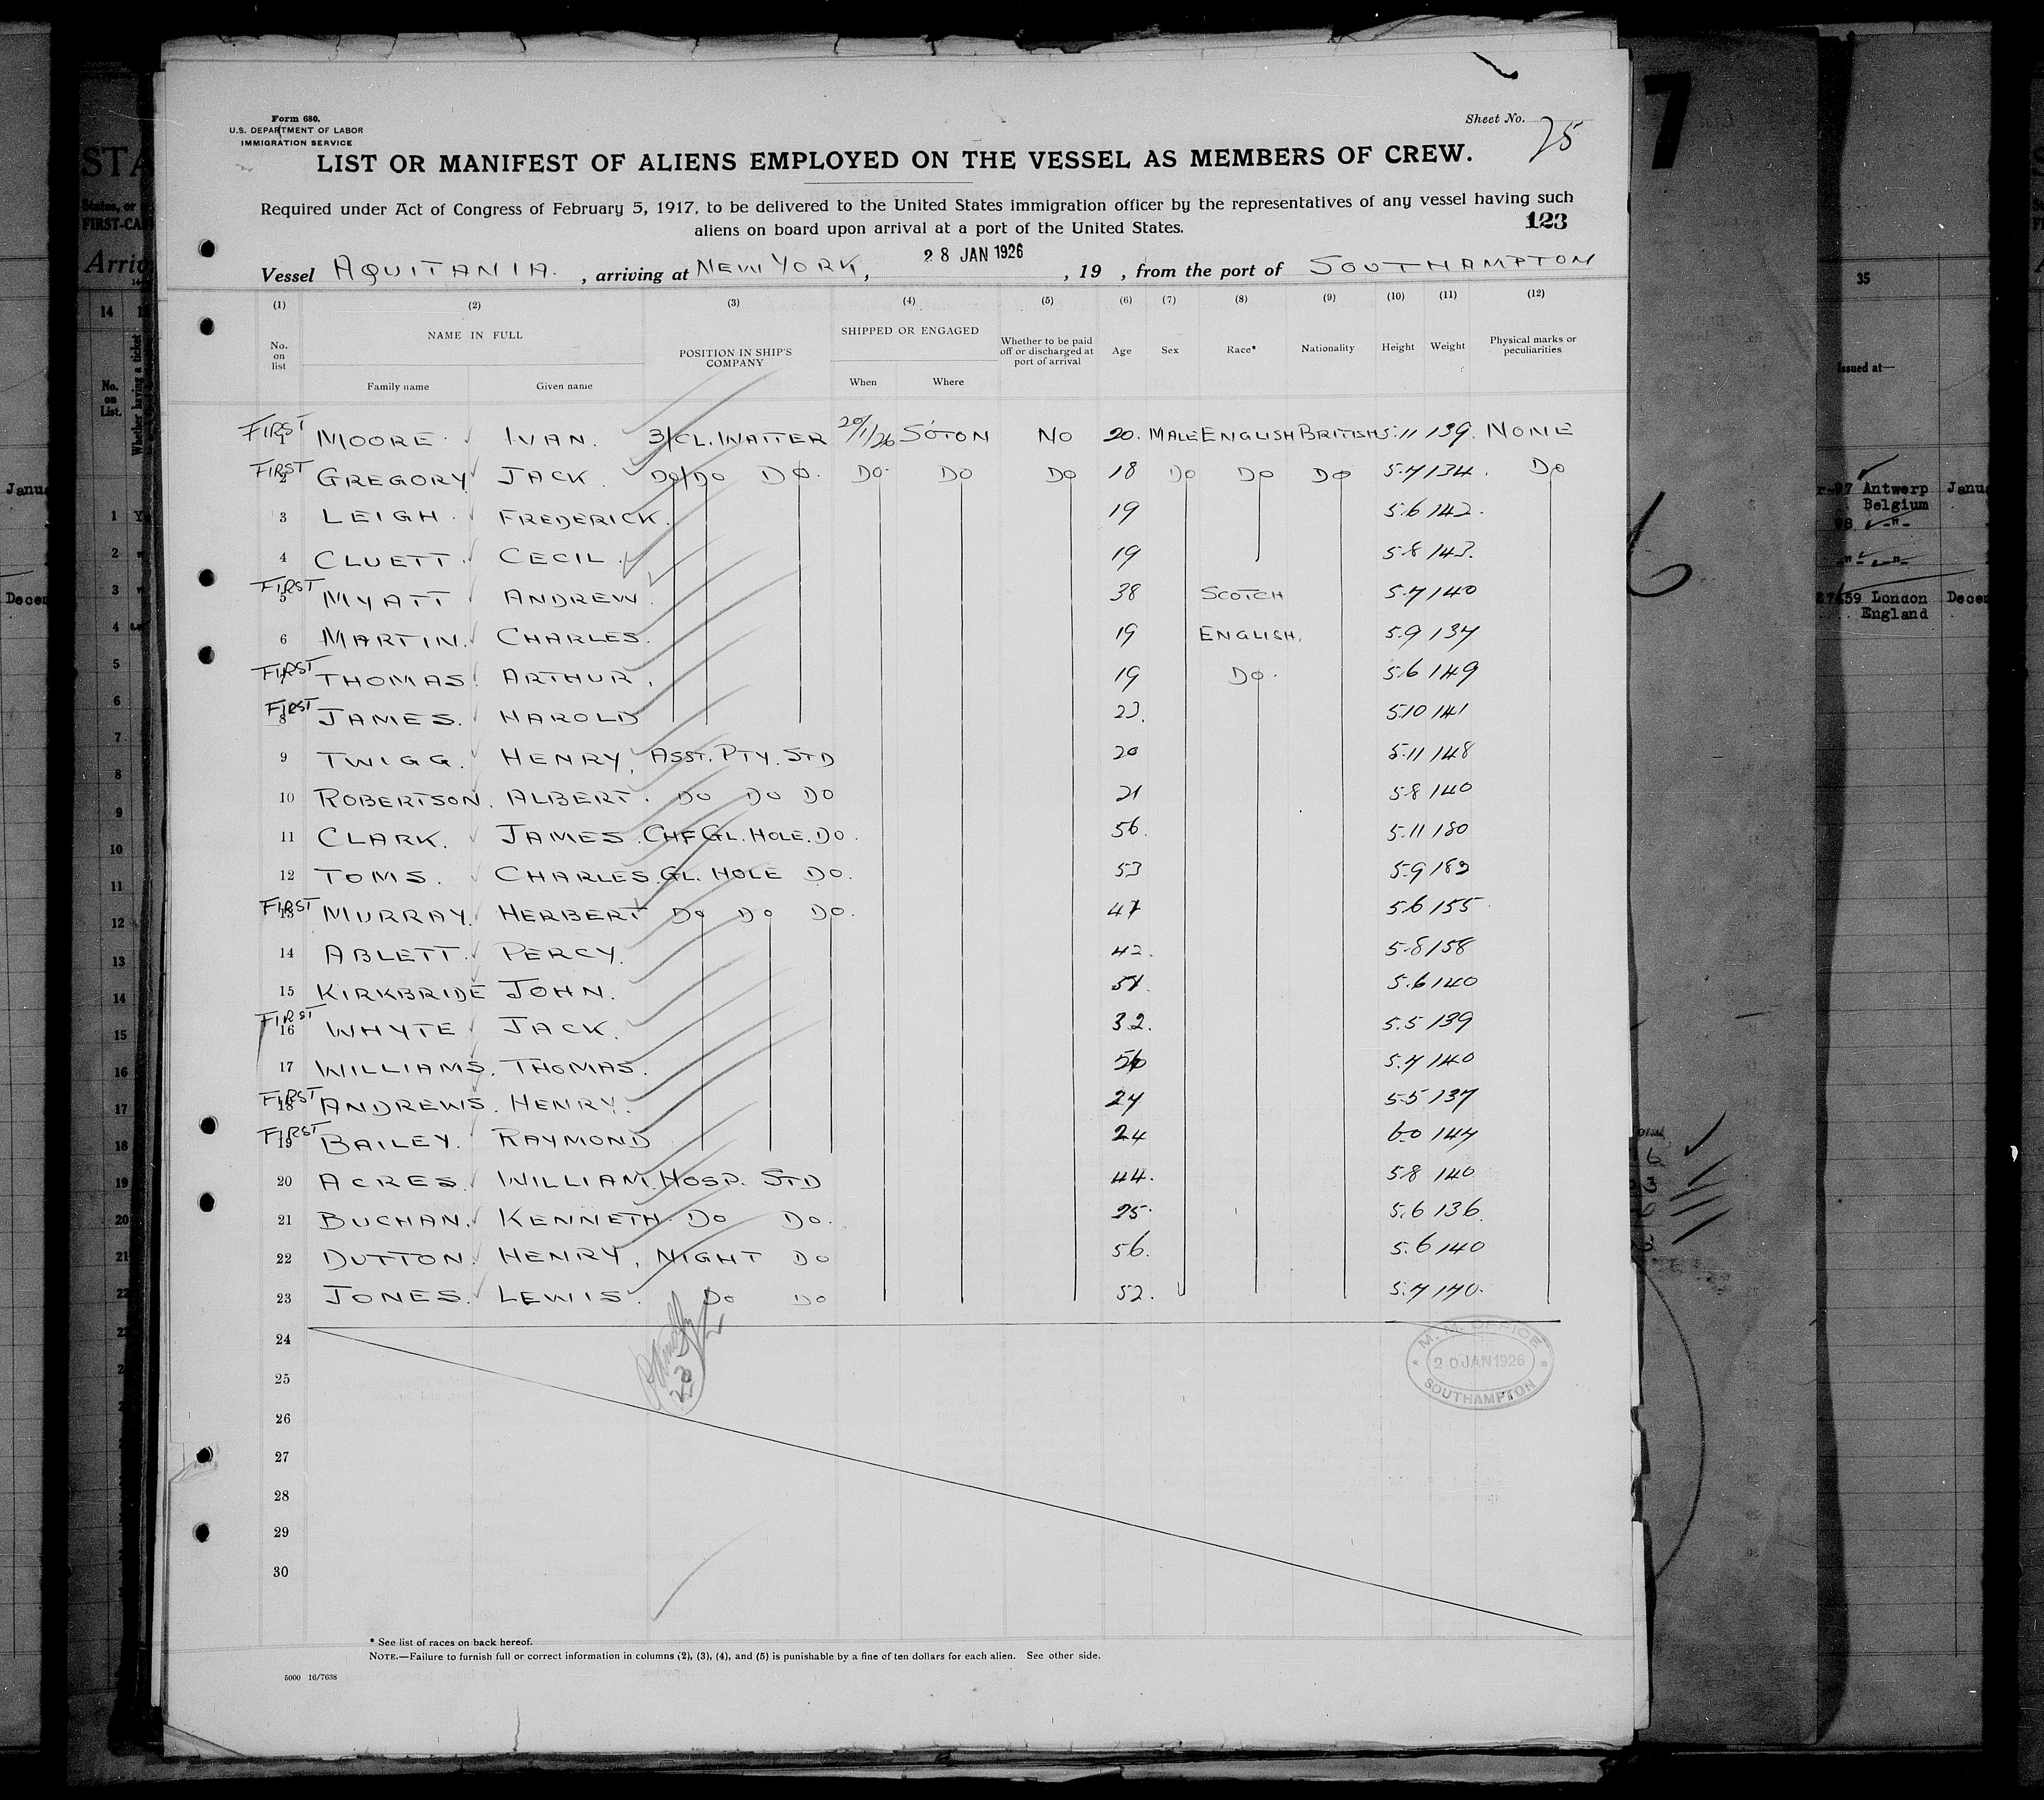 Form 680.
U.S. DEPARTMENT OF LABOR
IMMIGRATION SERVICE
Sheet No. 25
LIST OR MANIFEST OF ALIENS EMPLOYED ON THE VESSEL AS MEMBERS OF CREW.
Required under Act of Congress of February 5, 1917, to be delivered to the United States immigration officer by the representatives of any vessel having such
aliens on board upon arrival at a port of the United States.
123
28 JAN 1926
Vessel AQUITANIA. , arriving at NEW YORK, , 19 , from the port of SOUTHAMPTON
(1) (2) (3) (4) (5) (6) (7) (8) (9) (10) (11) (12)
No. on list NAME IN FULL POSITION IN SHIP'S COMPANY SHIPPED OR ENGAGED Whether to be paid off or discharged at port of arrival Age Sex Race* Nationality Height Weight Physical marks or peculiarities
Family name Given name When Where
FIRST 1 MOORE. IVAN. 3/CL. WAITER 20/1/26 S'OTON NO 20. MALE ENGLISH BRITISH 5.11 139. NONE
FIRST 2 GREGORY JACK. DO/DO DO. DO. DO DO 18 DO DO DO 5.7 134. DO
3 LEIGH. FREDERICK. 19 5.6 142.
4 CLUETT. CECIL. 19 5.8 143.
FIRST 5 MYATT ANDREW. 38 SCOTCH 5.7 140
6 MARTIN. CHARLES. 19 ENGLISH. 5.9 137
FIRST 7 THOMAS. ARTHUR. 19 DO. 5.6 149
FIRST 8 JAMES. HAROLD 23. 5.10 141
9 TWIGG. HENRY, ASST. PTY. STD 20 5.11 148
10 ROBERTSON. ALBERT. DO DO DO 21 5.8 140
11 CLARK. JAMES. CHF GL. HOLE. DO. 56. 5.11 180
12 TOMS. CHARLES. GL. HOLE DO. 53 5.9 183
FIRST 13 MURRAY. HERBERT DO DO DO. 47 5.6 155.
14 ABLETT. PERCY. 42. 5.8 158
15 KIRKBRIDE JOHN. 51. 5.6 140
FIRST 16 WHYTE JACK. 32. 5.5 139
17 WILLIAMS. THOMAS. 5.7 140
FIRST 18 ANDREWS. HENRY. 27 5.5 137
FIRST 19 BAILEY. RAYMOND 24 6.0 147
20 ACRES. WILLIAM. HOSP. STD 44. 5.8 140
21 BUCHAN. KENNETH. DO DO. 25. 5.6 136.
22 DUTTON. HENRY, NIGHT DO 56. 5.6 140
23 JONES. LEWIS. DO DO 52. 5.7 170.
24
25
26
27
28
29
30
23
M. M. OFFICE
20 JAN 1926
SOUTHAMPTON
* See list of races on back hereof.
NOTE.—Failure to furnish full or correct information in columns (2), (3), (4), and (5) is punishable by a fine of ten dollars for each alien. See other side.
5000 16/7638
STA
States, or
FIRST-CA
14
No. on List.
Whether having a ticket
7
35
Issued at—
Antwerp
Belgium
London
England